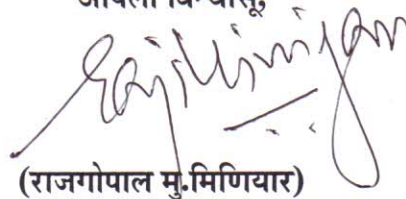 आपला विश्वासू,
(राजगोपाल मु.मिणियार)